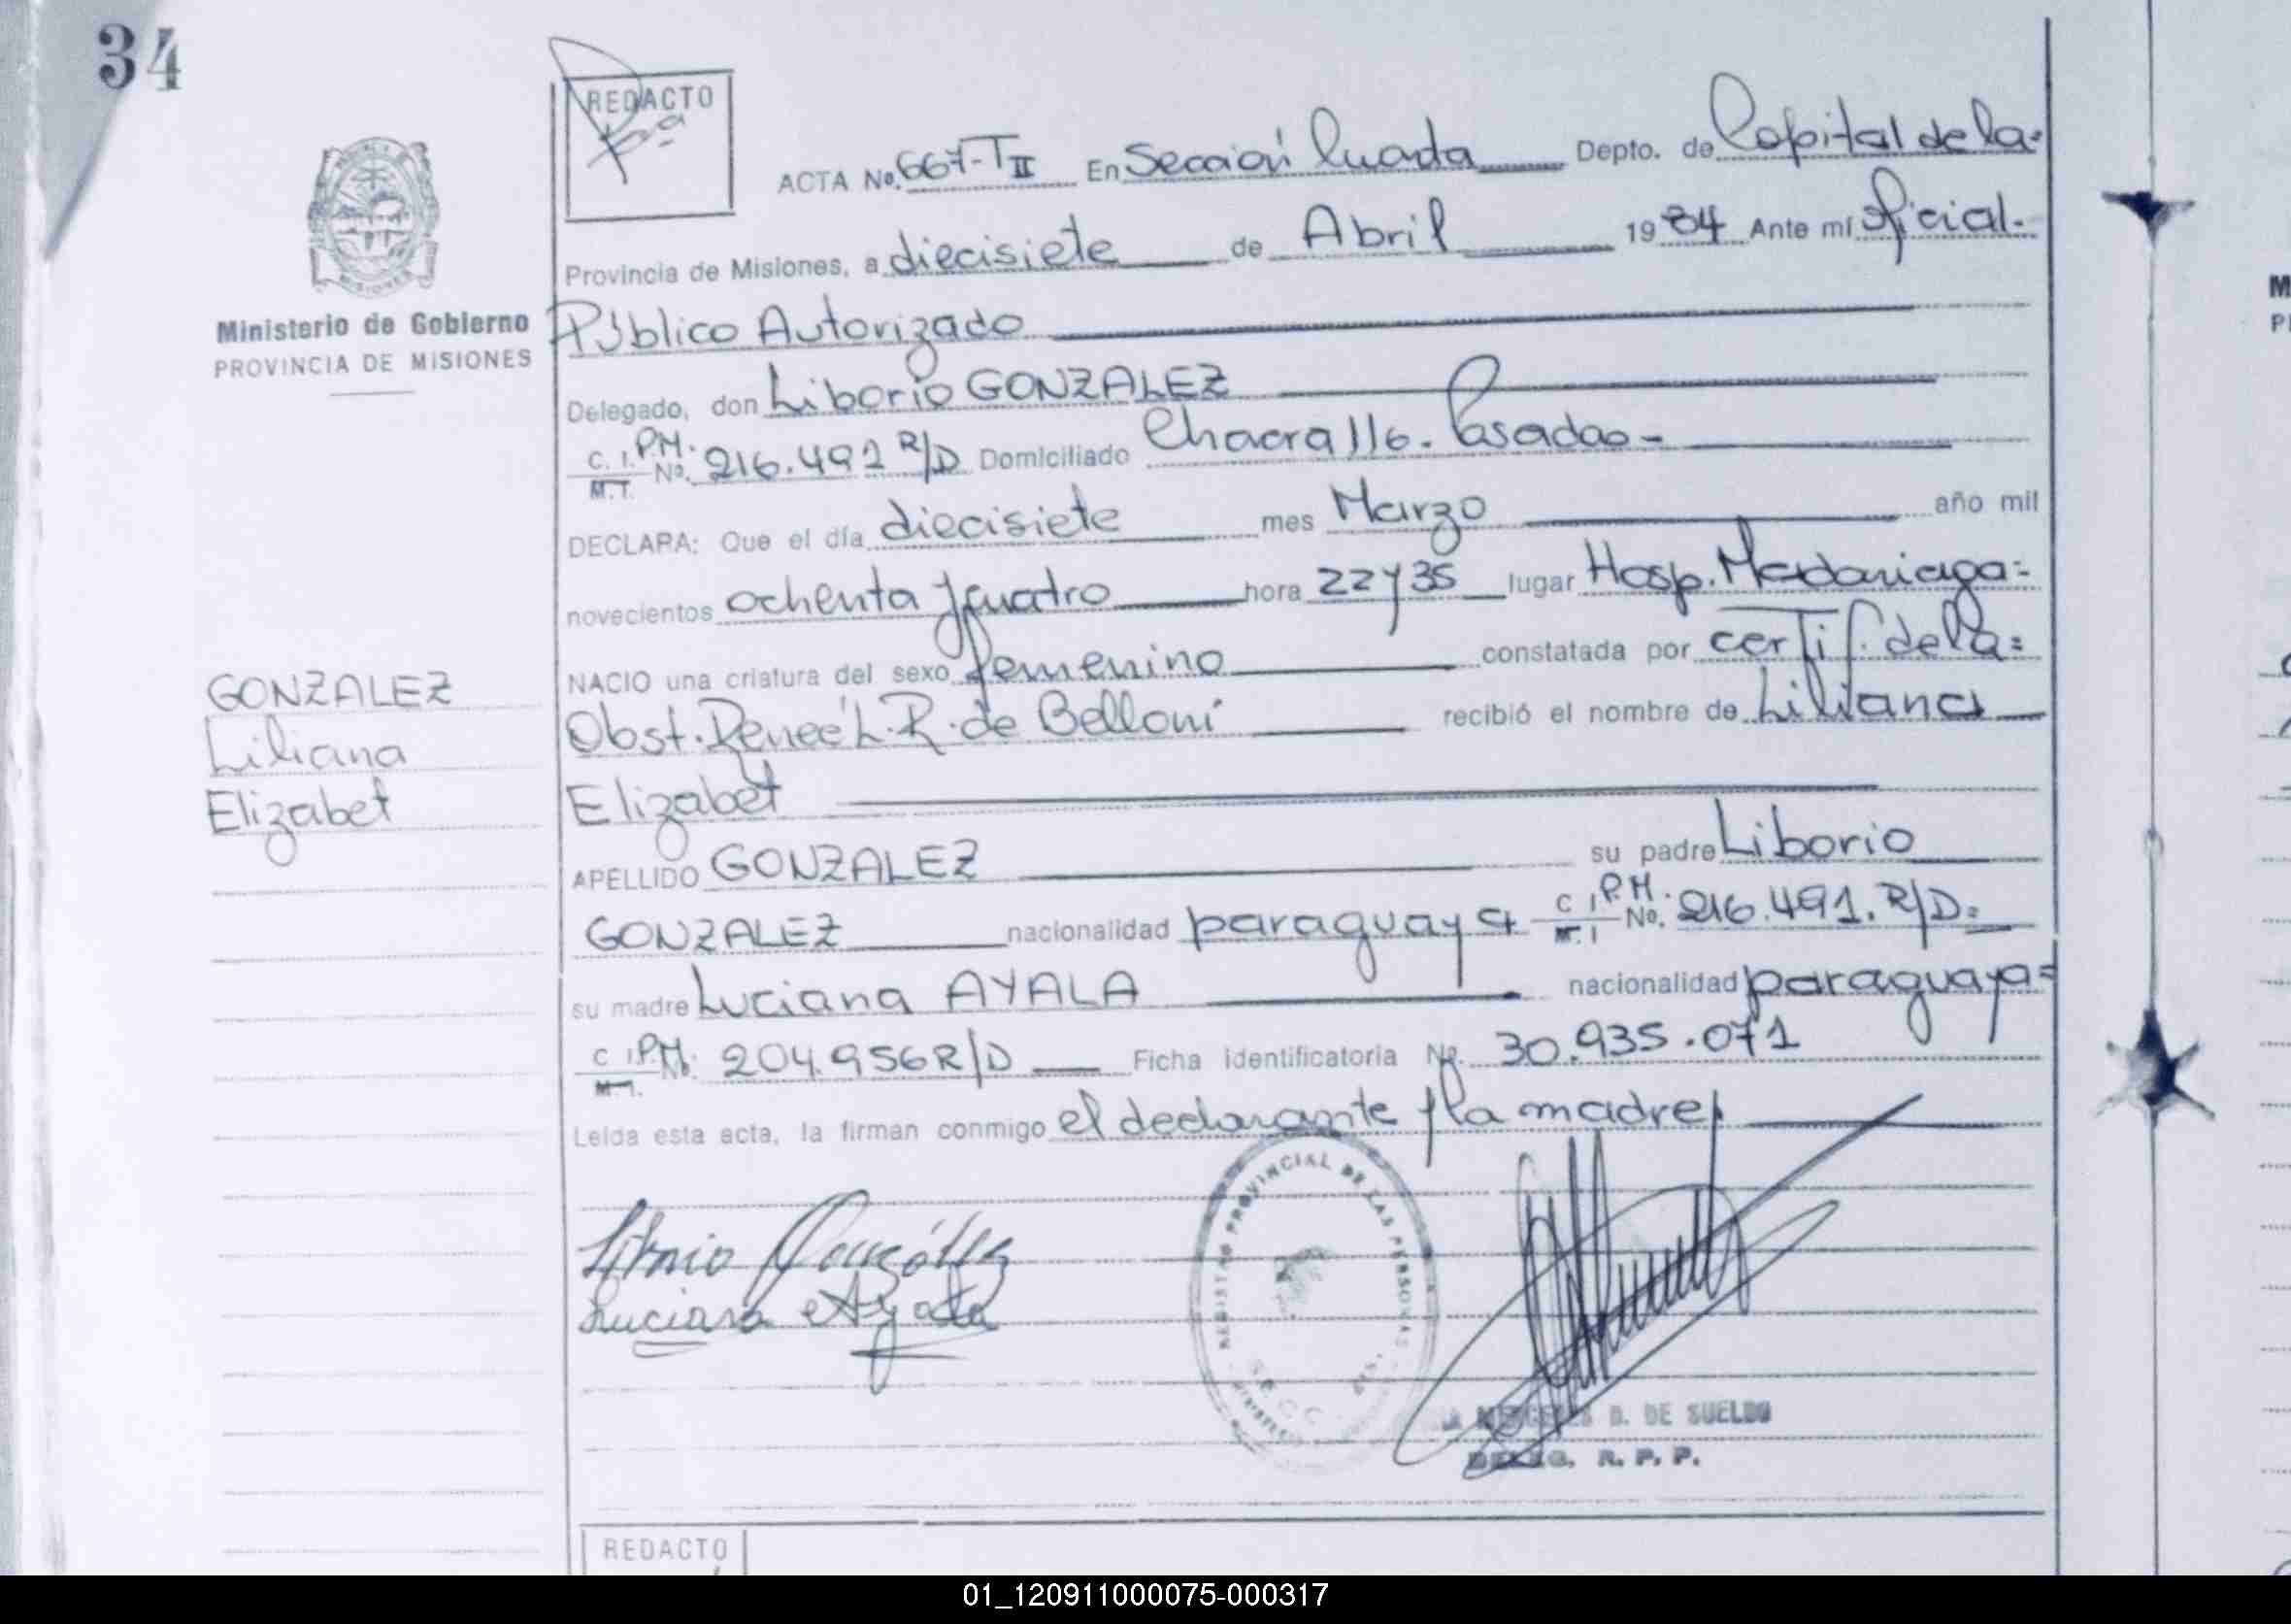 34
REDACTO
ACTA No. 667-TII En Sección Cuarta Depto. de Capital de la=
Provincia de Misiones, a diecisiete de Abril 1984 Ante mí Oficial.
Público Autorizado
Ministerio de Gobierno
PROVINCIA DE MISIONES
Delegado, don Liborio GONZALEZ
C. I. P.M. No. 216.491 R/D Domiciliado Chacra 116. Posadas-
M. I.
DECLARA: Que el día diecisiete mes Marzo año mil
novecientos ochenta y cuatro hora 22 y 35 lugar Hosp. Madariaga=
NACIO una criatura del sexo femenino constatada por certif. de la=
Obst. Reneé L. R. de Belloni recibió el nombre de Liliana
Elizabet
GONZALEZ
Liliana
Elizabet
APELLIDO GONZALEZ su padre Liborio
GONZALEZ nacionalidad paraguaya C I P.M. No. 216.491. R/D=
M. I
su madre Luciana AYALA nacionalidad paraguaya=
C I P.M. No. 204.956 R/D Ficha identificatoria No. 30.935.071
M. I.
Leída esta acta, la firman conmigo el declarante y la madre
Liborio González
Luciana Ayala
REGISTRO PROVINCIAL DE LAS PERSONAS
D. DE SUELDO
DELEG. R. P. P.
REDACTO
01_120911000075-000317